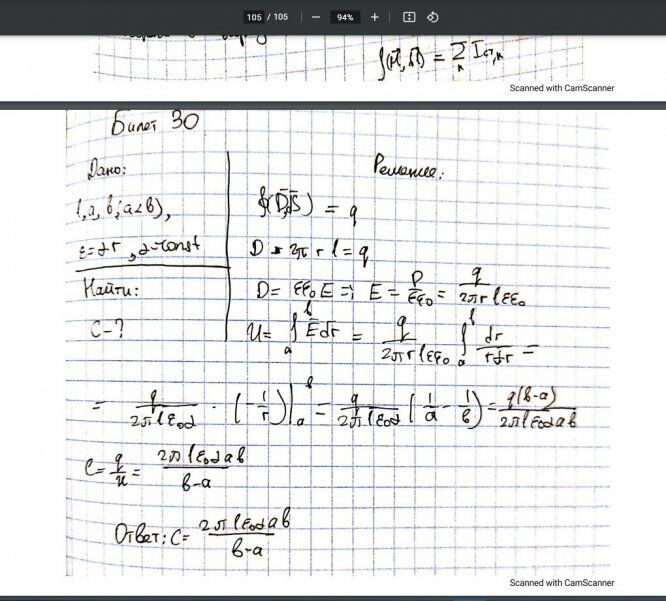 105 / 105 94%
∮(H, dl) = Σ I
Scanned with CamScanner
Билет 30
Дано:
l, a, b, (a<b),
ε=αr, α-const
Найти:
C-?
Решение:
∮(D̄,dS̄) = q
D · 2π r l = q
D = εε₀E => E = D/εε₀ = q/2πrlεε₀
U = ∫ₐᵇ Ēdr̄ = q/2πrlεε₀ ∫ₐᵇ dr/rαr =
= q/2πlε₀α · (-1/r)|ₐᵇ = q/2πlε₀α (1/a - 1/b) = q(b-a)/2πlε₀αab
C = q/U = 2πlε₀αab/b-a
Ответ: C = 2πlε₀αab/b-a
Scanned with CamScanner